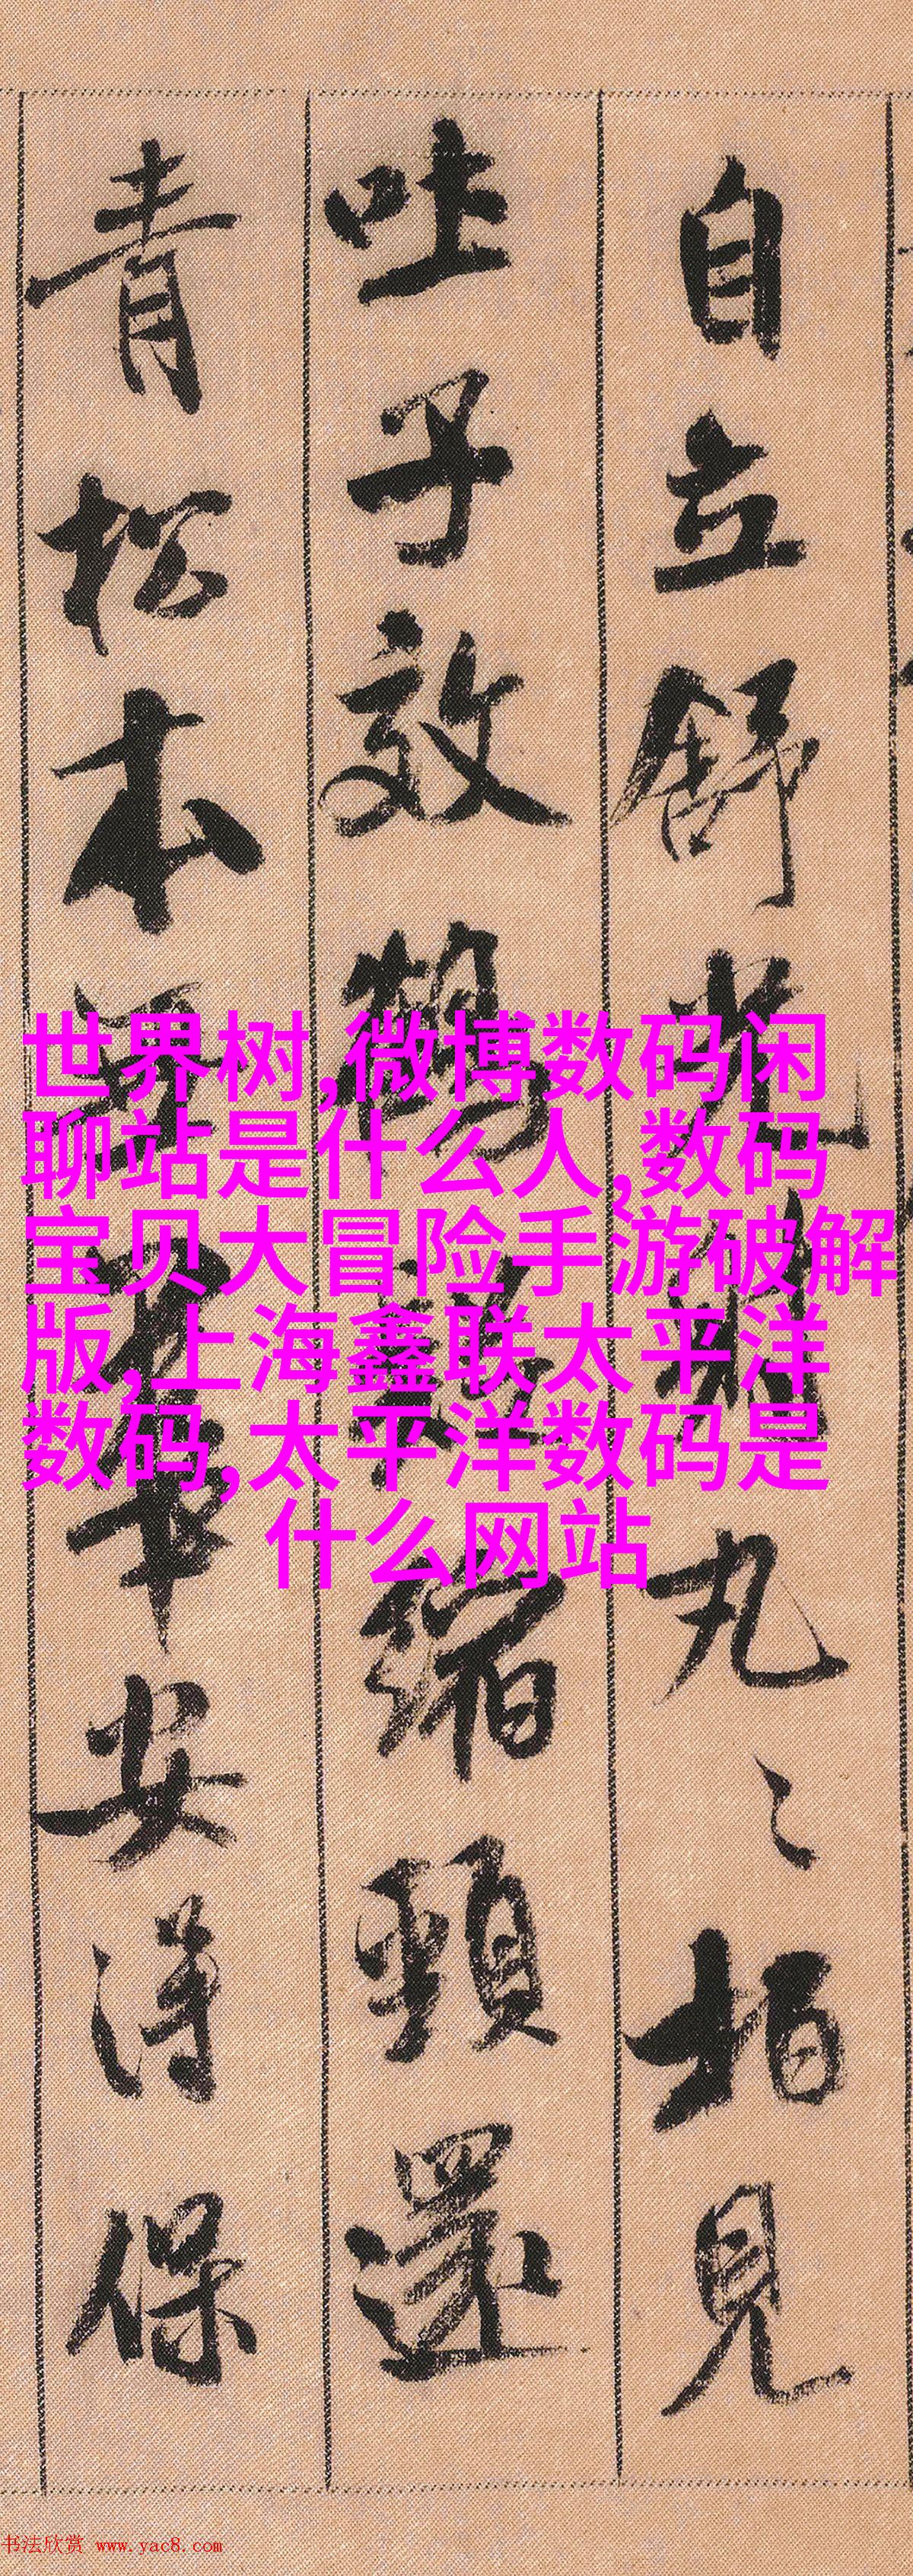 自立舒光射丸〻柏見
吐子效鶴疑縮頸還
青松本無華安得保
世界树,微博数码闲
聊站是什么人,数码
宝贝大冒险手游破解
版,上海鑫联太平洋
数码,太平洋数码是
什么网站
书法欣赏 www.yac8.com